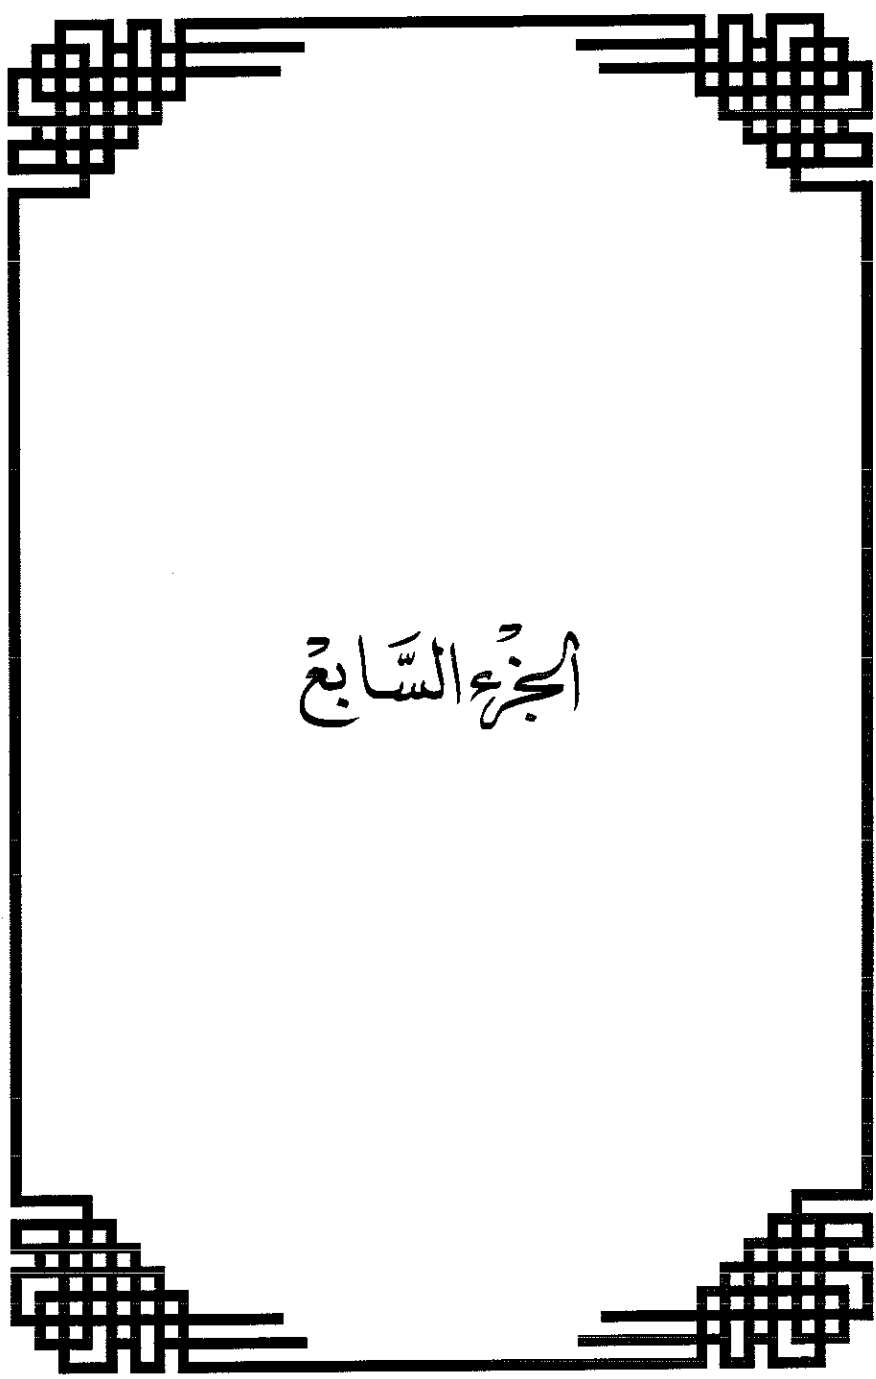 الجزْء السَّابعْ